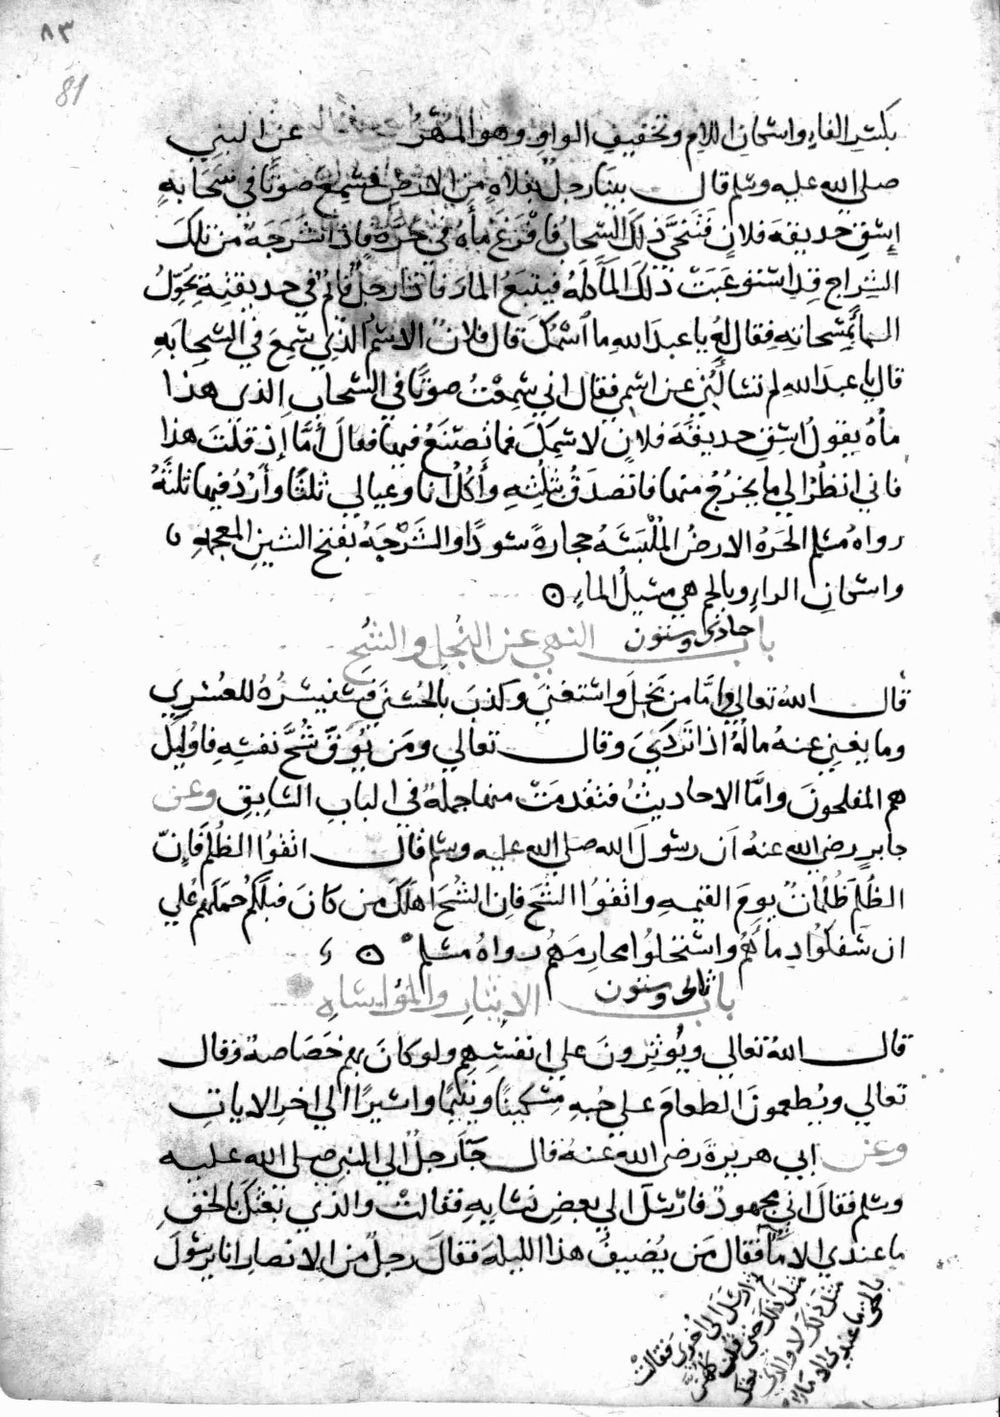 ٨٣
81
بكسر الفاء واسكان اللام وتخفيف الواو وهو المهر عن النبي
صلى الله عليه وسلم قال بينا رجل بفلاه من الارض فسمع صوتا في سحابه
اسق حديقه فلان فتنحى ذلك السحاب فافرغ ماه في حره فاذا شرجه من تلك
الشراج قد استوعبت ذلك الما كله فتتبع الما فاذا رجل قائم في حديقته يحول
الما بمسحاته فقال له يا عبد الله ما اسمك قال فلان الاسم الذي سمع في السحابه
قال يا عبد الله لم تسالني عن اسمي فقال اني سمعت صوتا في السحاب الذي هذا
ماه يقول اسق حديقه فلان لاسمك فما تصنع فيها فقال اما اذ قلت هذا
فاني انظر الي ما يخرج منها فاتصدق بثلثه واكل انا وعيالي ثلثا وارد فيها ثلثه
رواه مسلم الحره الارض الملبسه حجارة سودا والشرجه بفتح الشين المعجمه
واسكان الراء وبالجيم هي مسيل الماء
باب حادي وستون النهي عن البخل والشح
قال الله تعالي واما من بخل واستغنى وكذب بالحسني فسنيسره للعسري
وما يغني عنه ماله اذا تردي وقال تعالي ومن يوق شح نفسه فاوليك
هم المفلحون واما الاحاديث فتقدمت منها جمله في الباب السابق وعن
جابر رضي الله عنه ان رسول الله صلى الله عليه وسلم قال اتقوا الظلم فان
الظلم ظلمات يوم القيمه واتقوا الشح فان الشح اهلك من كان قبلكم حملهم علي
ان سفكوا دماهم واستحلوا محارمهم رواه مسلم
باب ثاني وستون الايثار والمواساه
قال الله تعالي ويوثرون علي انفسهم ولو كان بهم خصاصة وقال
تعالي ويطعمون الطعام علي حبه مسكينا ويتيما واسيرا الي اخر الايات
وعن ابي هريرة رضي الله عنه قال جا رجل الي النبي صلى الله عليه
وسلم فقال اني مجهود فارسل الي بعض نسايه فقالت والذي بعثك بالحق
ما عندي الا ما فقال من يضيف هذا الليله فقال رجل من الانصار انا يرسول
ارسل الى اخرى فقالت
مثل ذلك حتى قلن كلهن
مثل ذلك لا والذي بعثك
بالحق ما عندي الا ما